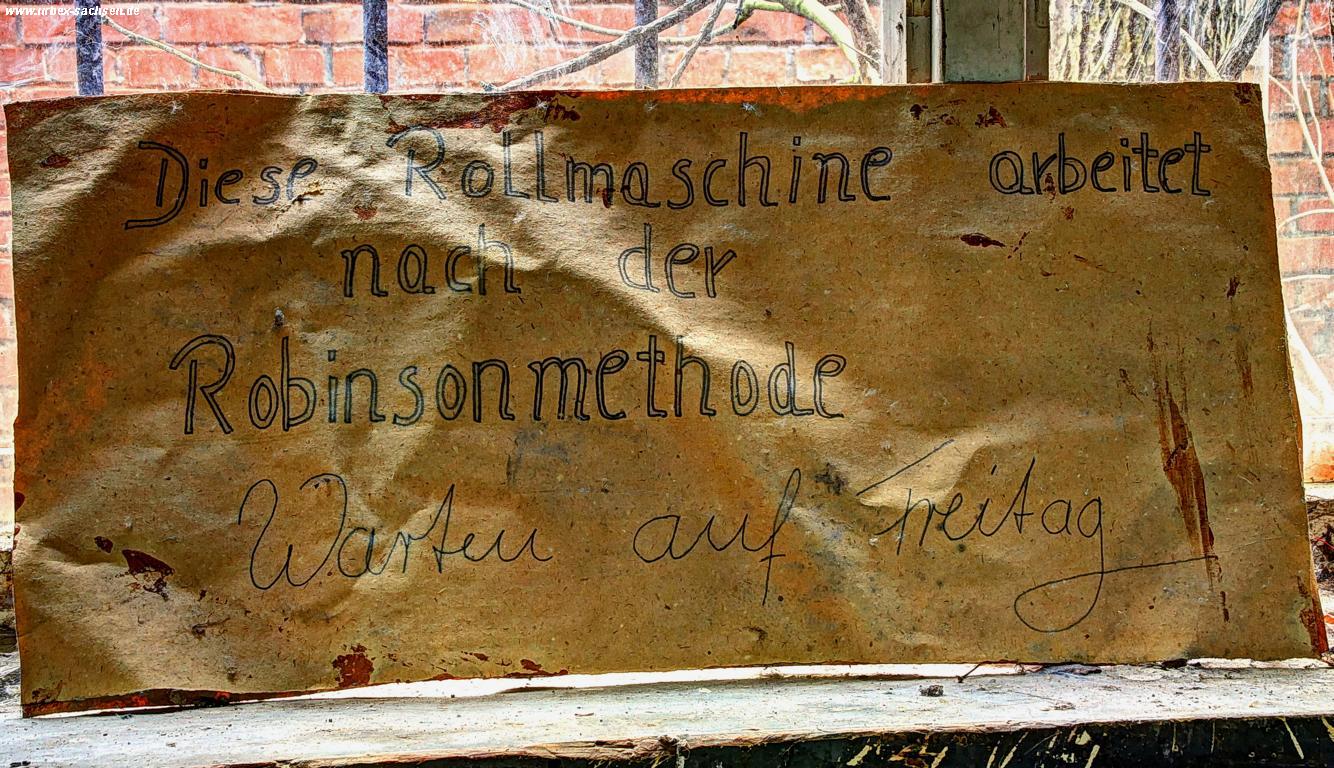 www.urbex-sachsen.de
Diese Rollmaschine arbeitet
nach der
Robinsonmethode
Warten auf Freitag